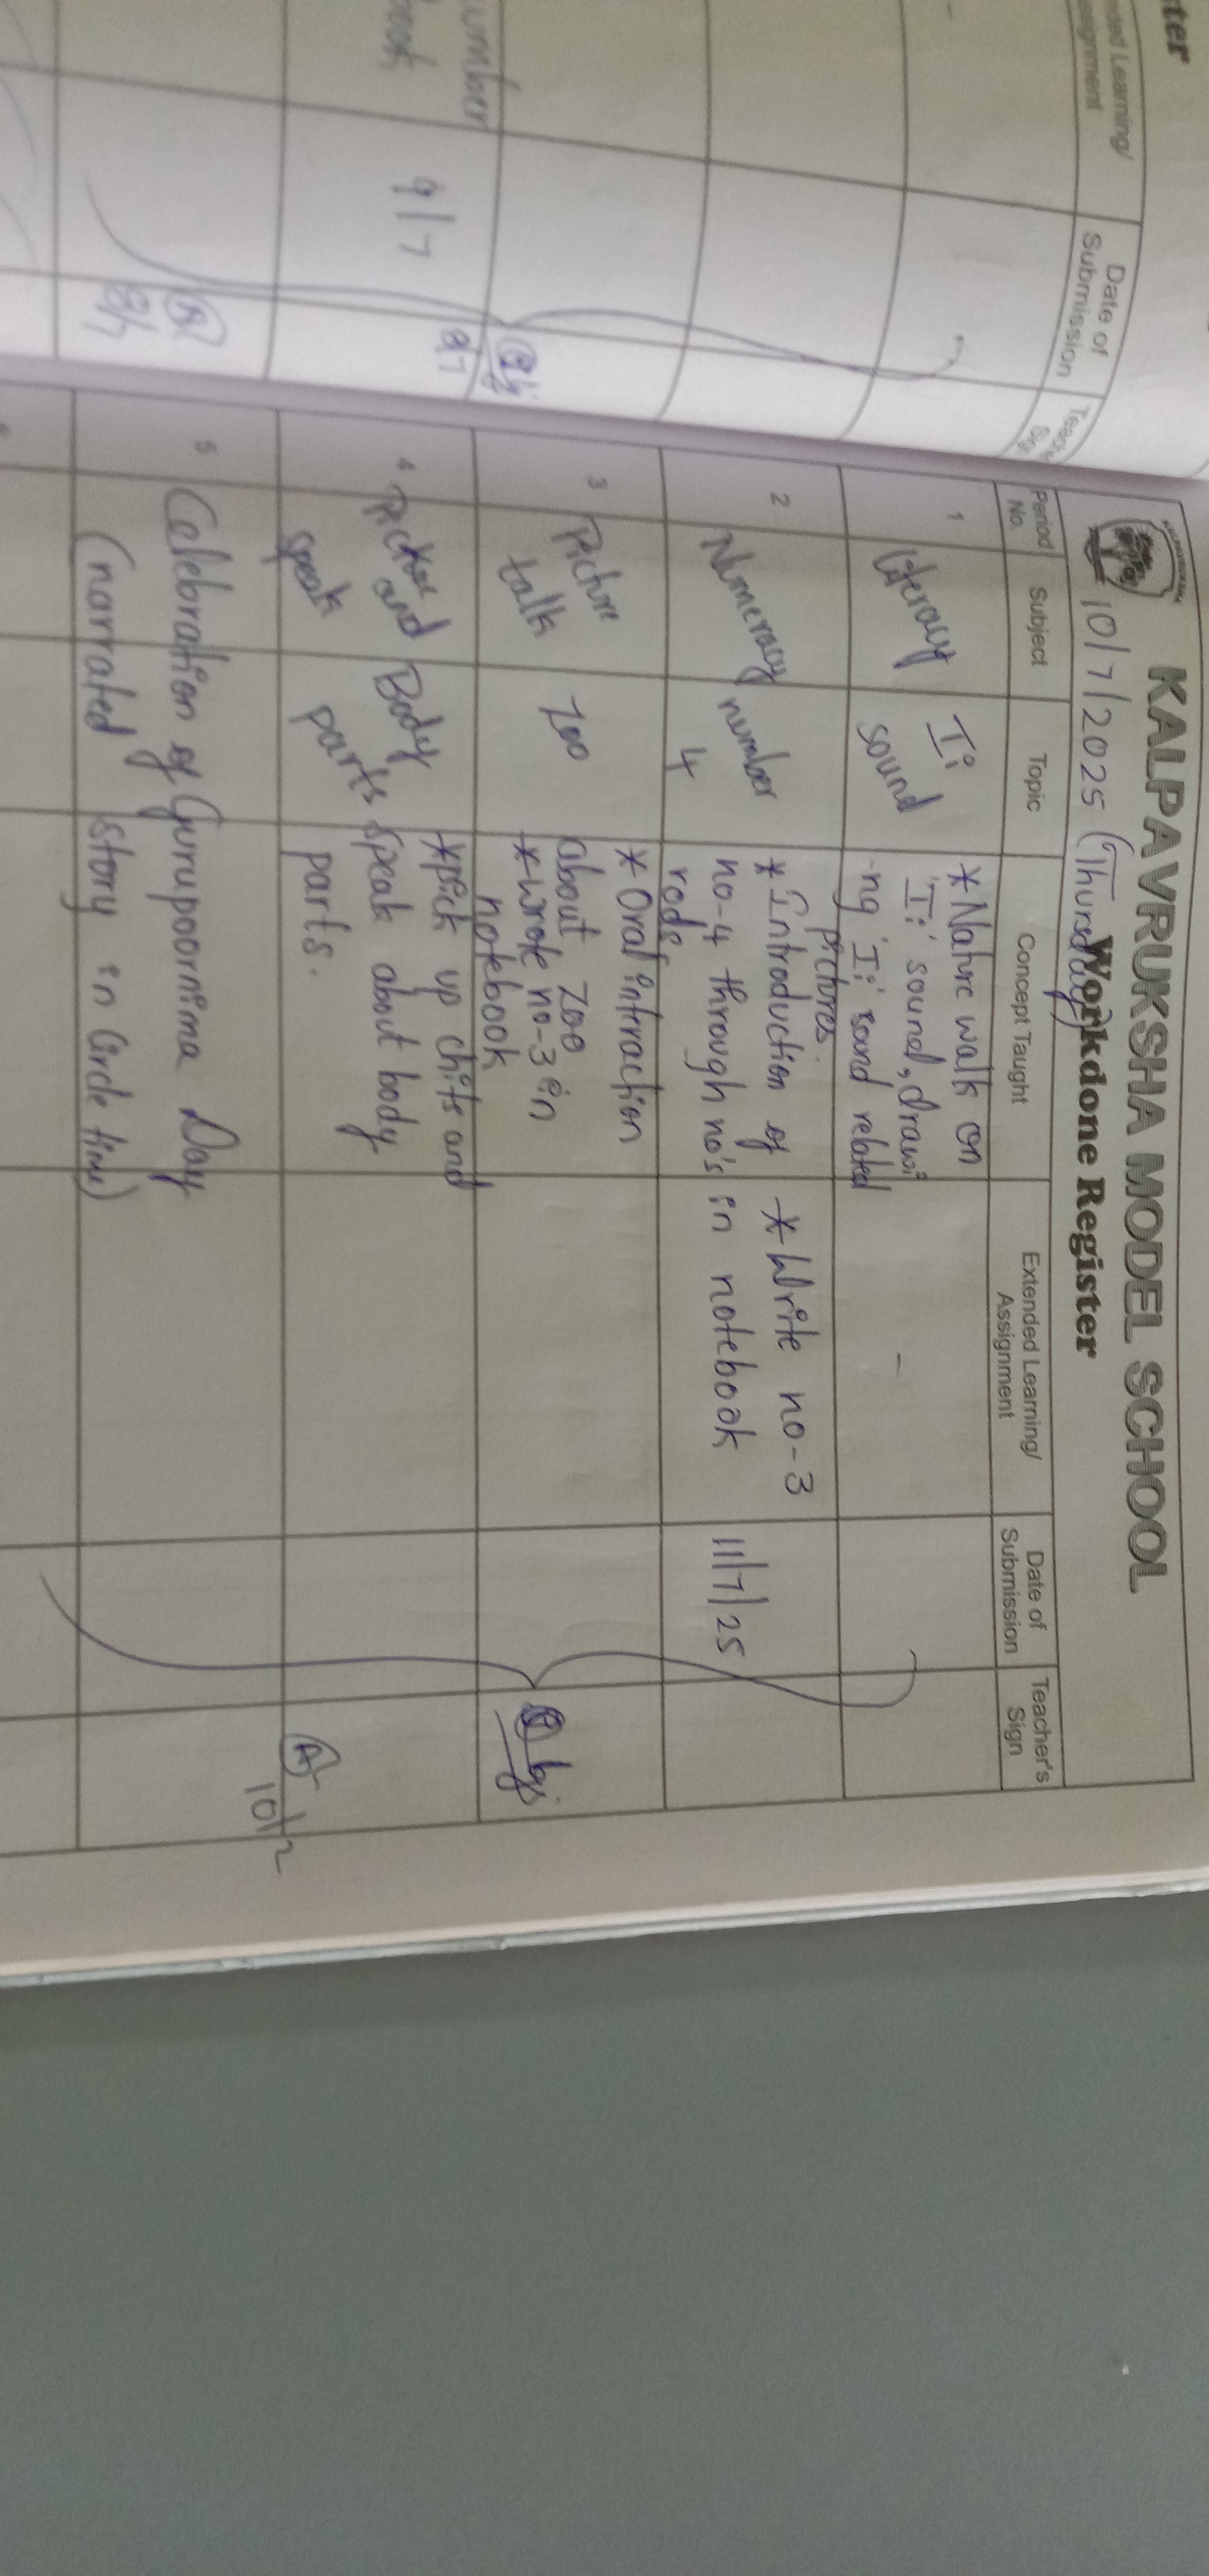 ter
ded Learning/
signment
Date of
Submission
Teache
Sig
umber
book
9/7
8/7
KALPAVRUKSHA MODEL SCHOOL
10/7/2025 (Thursday) Workdone Register
Period
No.
Subject
Topic
Concept Taught
Extended Learning/
Assignment
Date of
Submission
Teacher's
Sign
1
Literacy
Ii
sound
*Nature walk on
'Ii' sound, drawi
-ng 'Ii' sound related
pictures.
-
2
Numeracy
number
4
*Introduction of
no-4 through no's
rods
*Write no-3
in notebook
11/7/25
3
Picture
talk
Zoo
*Oral intraction
about Zoo
*wrote no-3 in
notebook
4
Pick
and
speak
Body
parts
*pick up chits and
speak about body
parts.
5
Celebration of Gurupoornima Day
(narrated story in Circle time)
10/7